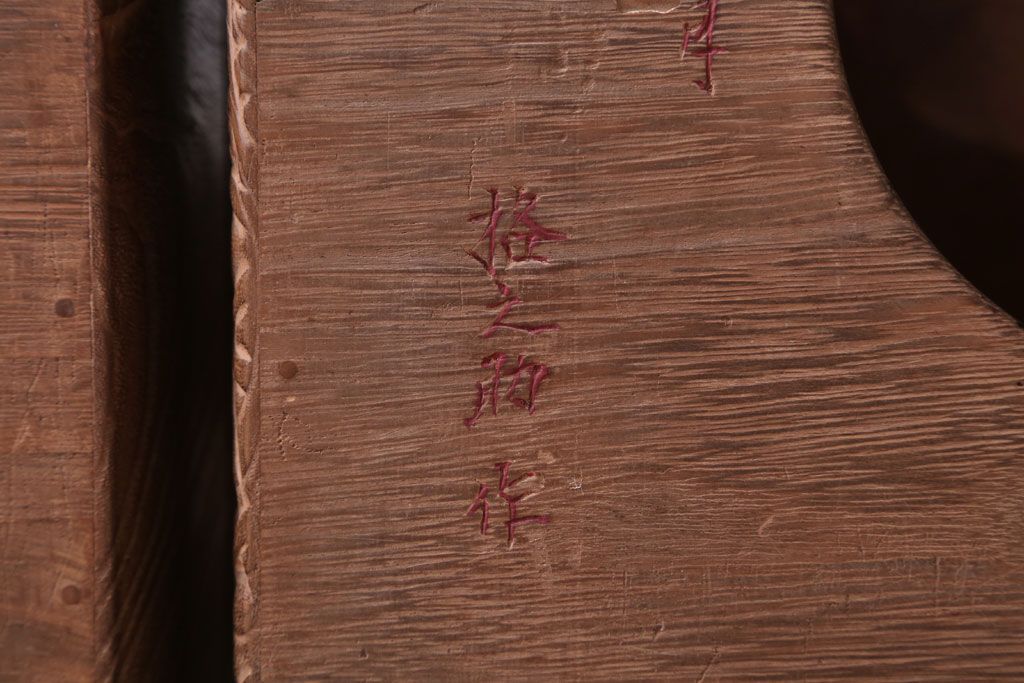 格之助
作